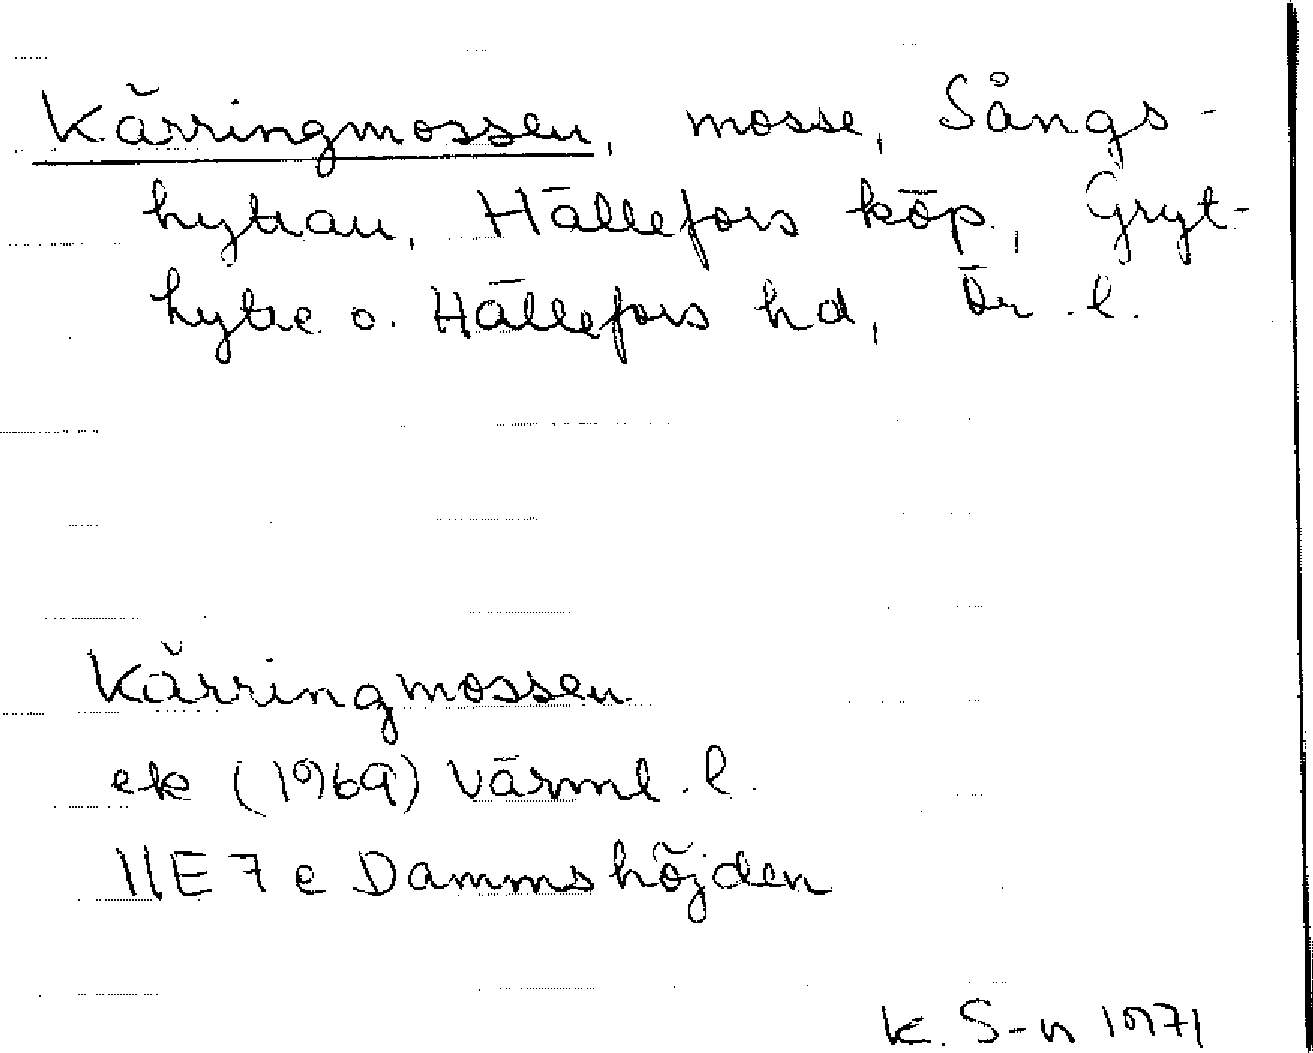 Kärringmossen, mosse, Sångs-
hyttan, Hällefors köp., Gryt-
hytte o. Hällefors hd, Ör. l.
Kärringmossen
ek (1969) Värml. l.
11E 7 e Dammshöjden
K. S-n 1971